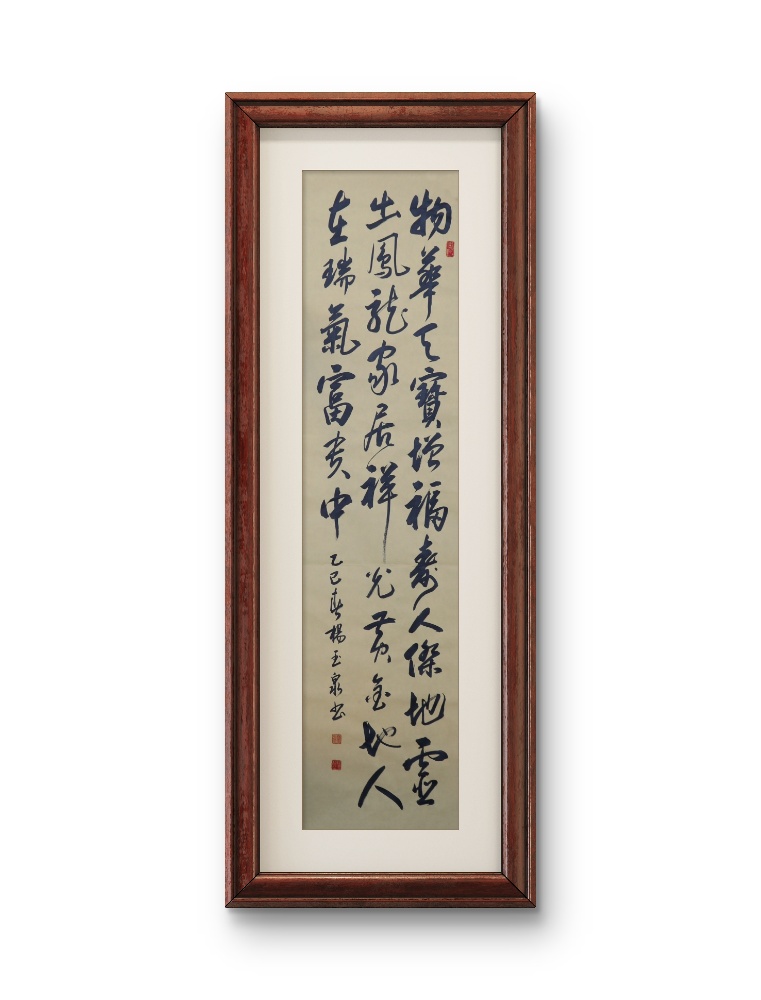 物華天寶增福壽人傑地靈
出鳳龍家居祥光黃金地人
在瑞氣富貴中
乙巳春楊玉泉书